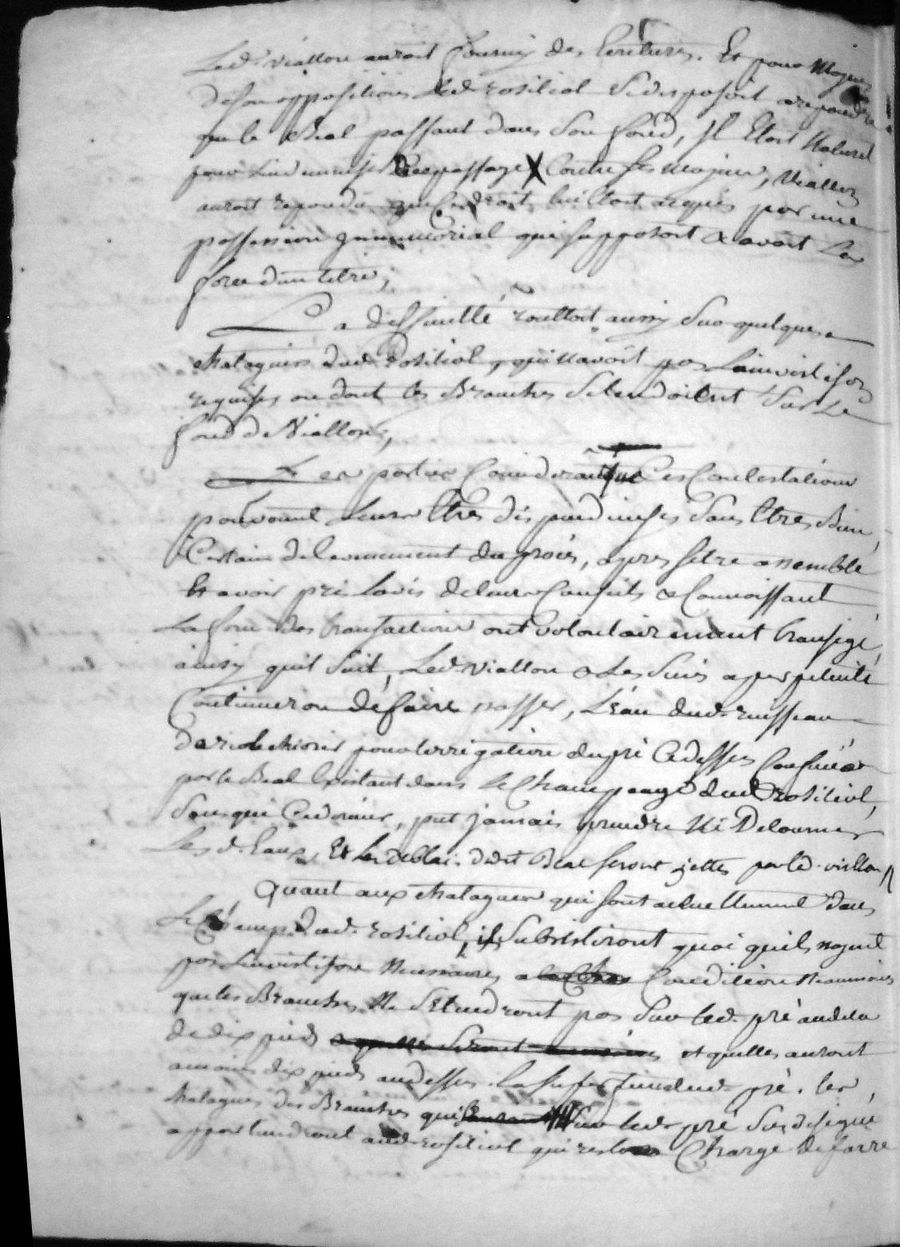 Led. viallon auroit fourny des Ecritures. Et pour Moyen
de son opposition Led. rositiol disposoit a repondre
que le Beal passant dans Son fond, Il Etoit Naturel
pour X Contre Ses moyens, Viallon
auroit repondu que Ce droit lui Etoit aquis par une
possession immemorial qui supposoit & avoit La
force d'un titre,
La difficulté roulloit aussy Sur quelques
chataigniers dud. rositiol, qui n'avoit pas
requise ou dont les Branches S'etendoient Sur Le
fond de Viallon,
Les parties Considerant que Ces Contestations
pouvoient Leur Etres dispendieuses Sans Etres Bien
Certain de levennement du procès, apres s'etre assemblé
Et avoir pris Lavis de leur Conseils & Connoissant
La force des transactions ont volontairement transigé
ainsy quil Suit, Led. viallon & Les Siens a perpetuité
Continueron de faire passer, L'eau dud. ruisseau
de pour lirrigation du pré Cy dessus Confiné
par le Beal Existant dans Le Champ dud. Rositiol,
Sans que Ce dernier, put jamais prendre Ni Detourner
Les d. Eaux, Et Les deblai dudit Beal Seront jettes par led. viallon
Quant aux chataigner qui sont actuellement dans
Le Champ dud. rositiol, ils Subsisteront quoi quils nayent
pas necessaires a Condition neanmoins
que les Branches Ne S'etendront pas Sur led. pré audela
de dix pieds et quelles auront
amoins dix pieds audessus la Superficie dud. pré. les
chataignes des Branches qui Sur led. pré
appartiendront aud. rositiol qui restera Chargé de faire